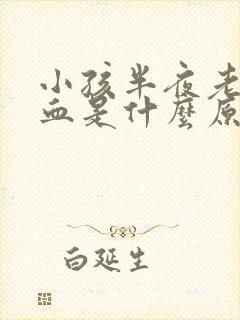 小孩半夜老
血是什麼原
白延生